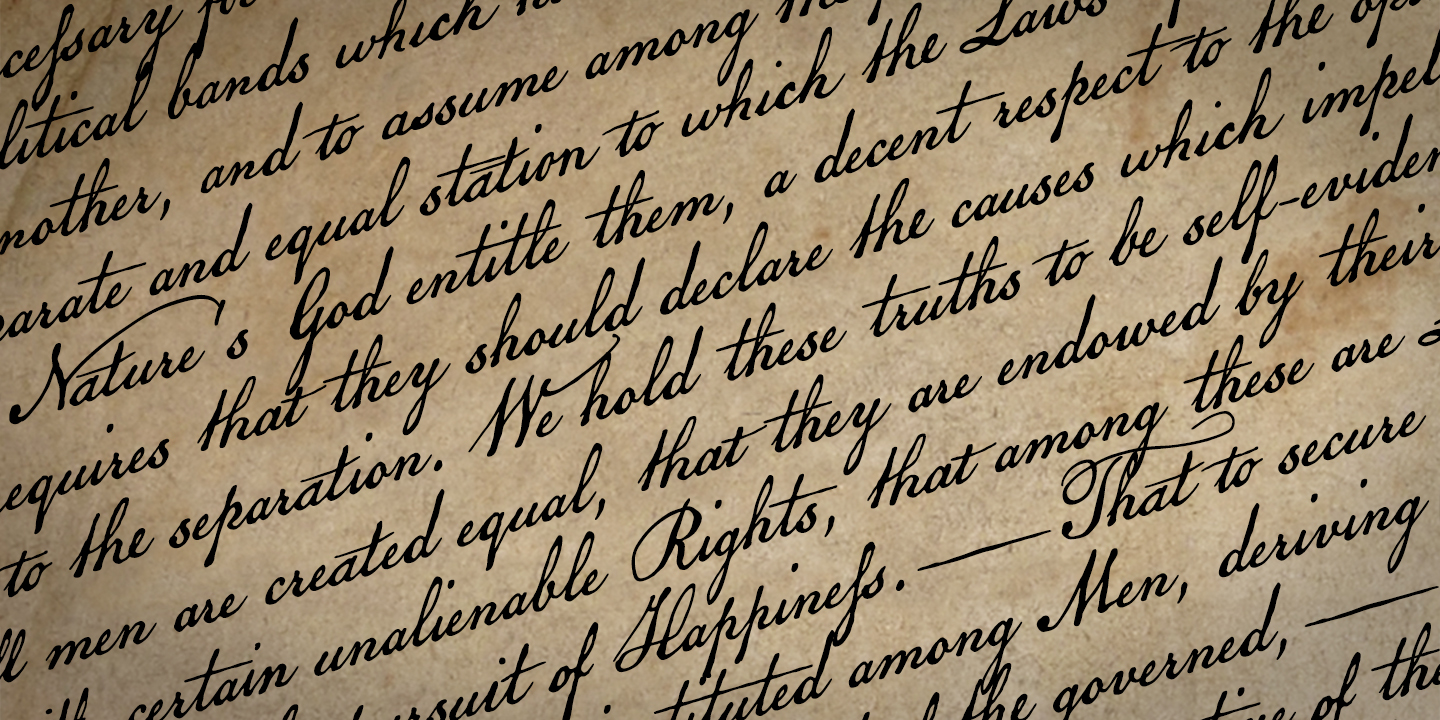 ceſsary for
litical bands which
nother, and to assume among
parate and equal station to which the Laws
Nature s God entitle them, a decent respect to the op
equires that they should declare the causes which impel
to the separation. We hold these truths to be self-eviden
ll men are created equal, that they are endowed by their
certain unalienable Rights, that among these are
rsuit of Happineſs. — That to secure
tituted among Men, deriving
the governed, —
of the